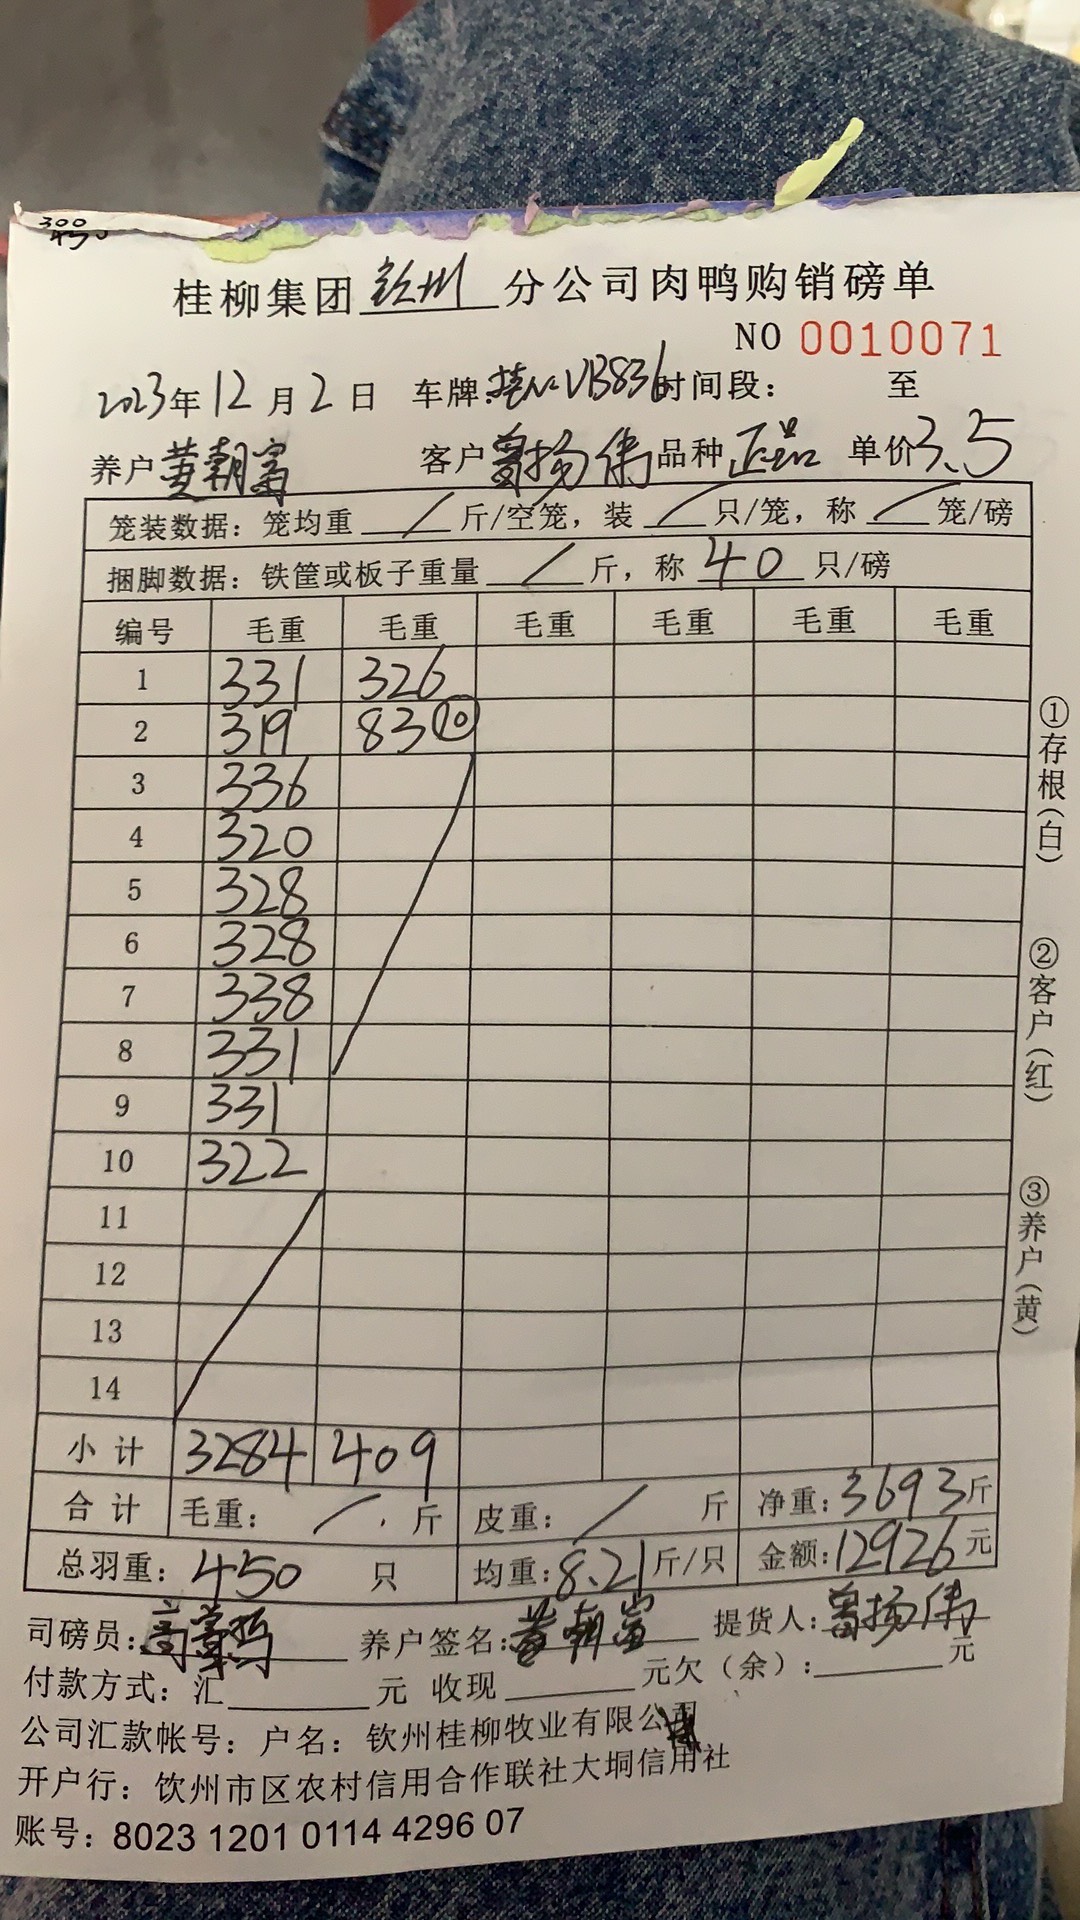 300
450
桂柳集团钦州分公司肉鸭购销磅单
NO 0010071
2023年12月2日 车牌:桂N·VB836时间段: 至
养户黄朝富 客户曾扬伟品种正品 单价3.5
笼装数据:笼均重/斤/空笼,装/只/笼,称/笼/磅
捆脚数据:铁筐或板子重量/斤,称40只/磅
编号 毛重 毛重 毛重 毛重 毛重 毛重
1 331 326
2 319 83⑩
3 336
4 320
5 328
6 328
7 338
8 331
9 331
10 322
11
12
13
14
小计 3284 409
合计 毛重:/.斤 皮重:/斤 净重:3693斤
总羽重:450只 均重:8.21斤/只 金额:12926元
司磅员: 养户签名:黄朝富 提货人:曾扬伟
付款方式:汇 元 收现 元欠(余): 元
公司汇款帐号:户名:钦州桂柳牧业有限公司
开户行:钦州市区农村信用合作联社大垌信用社
账号:8023 1201 0114 4296 07
①存根(白)
②客户(红)
③养户(黄)